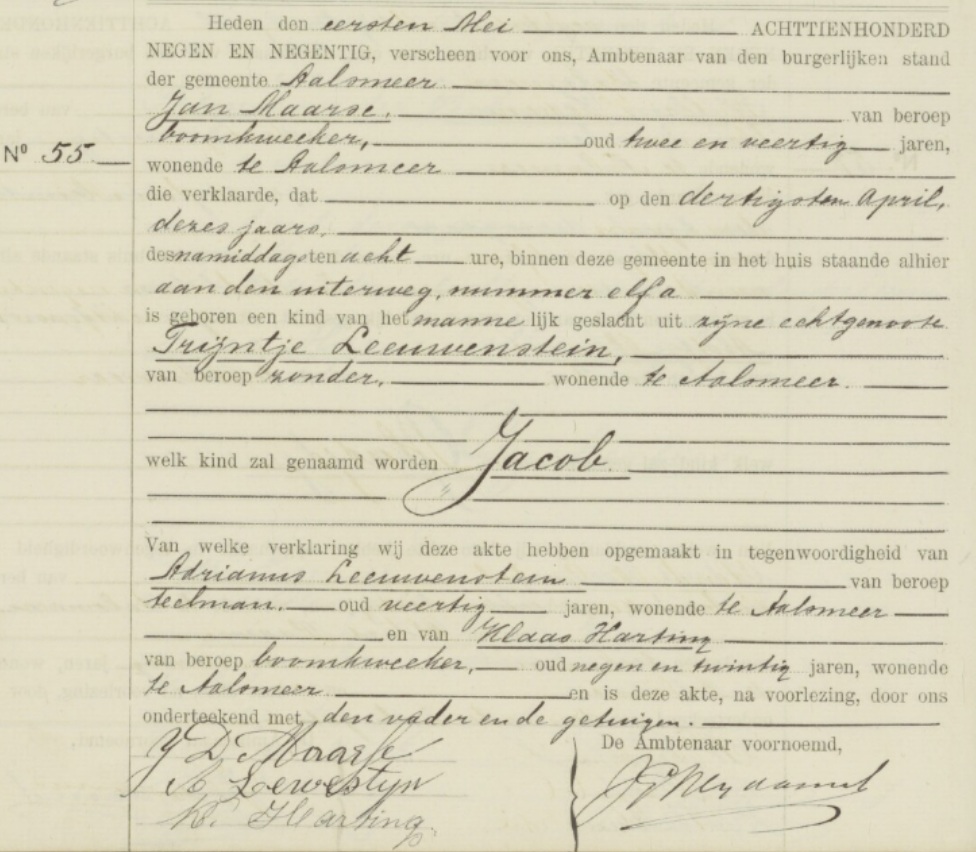 Heden den eersten Mei ACHTTIENHONDERD
NEGEN EN NEGENTIG, verscheen voor ons, Ambtenaar van den burgerlijken stand
der gemeente Aalsmeer
Jan Maarse, van beroep
boomkweeker, oud twee en veertig jaren,
Nº 55
wonende te Aalsmeer
die verklaarde, dat op den dertigsten April,
dezes jaars,
des namiddags ten acht ure, binnen deze gemeente in het huis staande alhier
aan den uiterweg, nummer elf a
is geboren een kind van het mannelijk geslacht uit zijne echtgenoote
Trijntje Leeuwenstein,
van beroep zonder, wonende te Aalsmeer.
welk kind zal genaamd worden Jacob.
Van welke verklaring wij deze akte hebben opgemaakt in tegenwoordigheid van
Adrianus Leeuwenstein van beroep
teelman, oud veertig jaren, wonende te Aalsmeer
en van Klaas Harting
van beroep boomkweeker, oud negen en twintig jaren, wonende
te Aalsmeer en is deze akte, na voorlezing, door ons
onderteekend met den vader en de getuigen.
De Ambtenaar voornoemd,
J D Maarse
A Lewestyn
K. Harting.